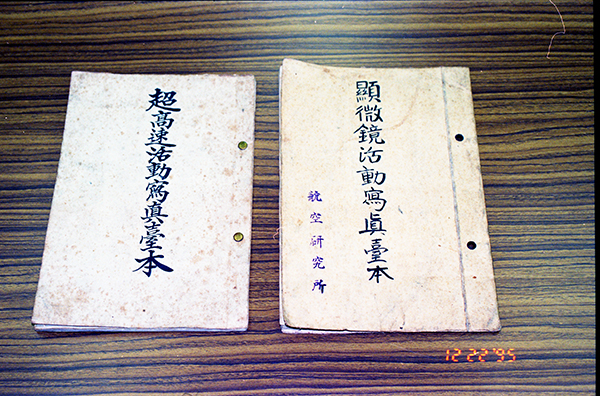 超高速活動寫眞臺本
顯微鏡活動寫眞臺本
航空硏究所
12 22 '95